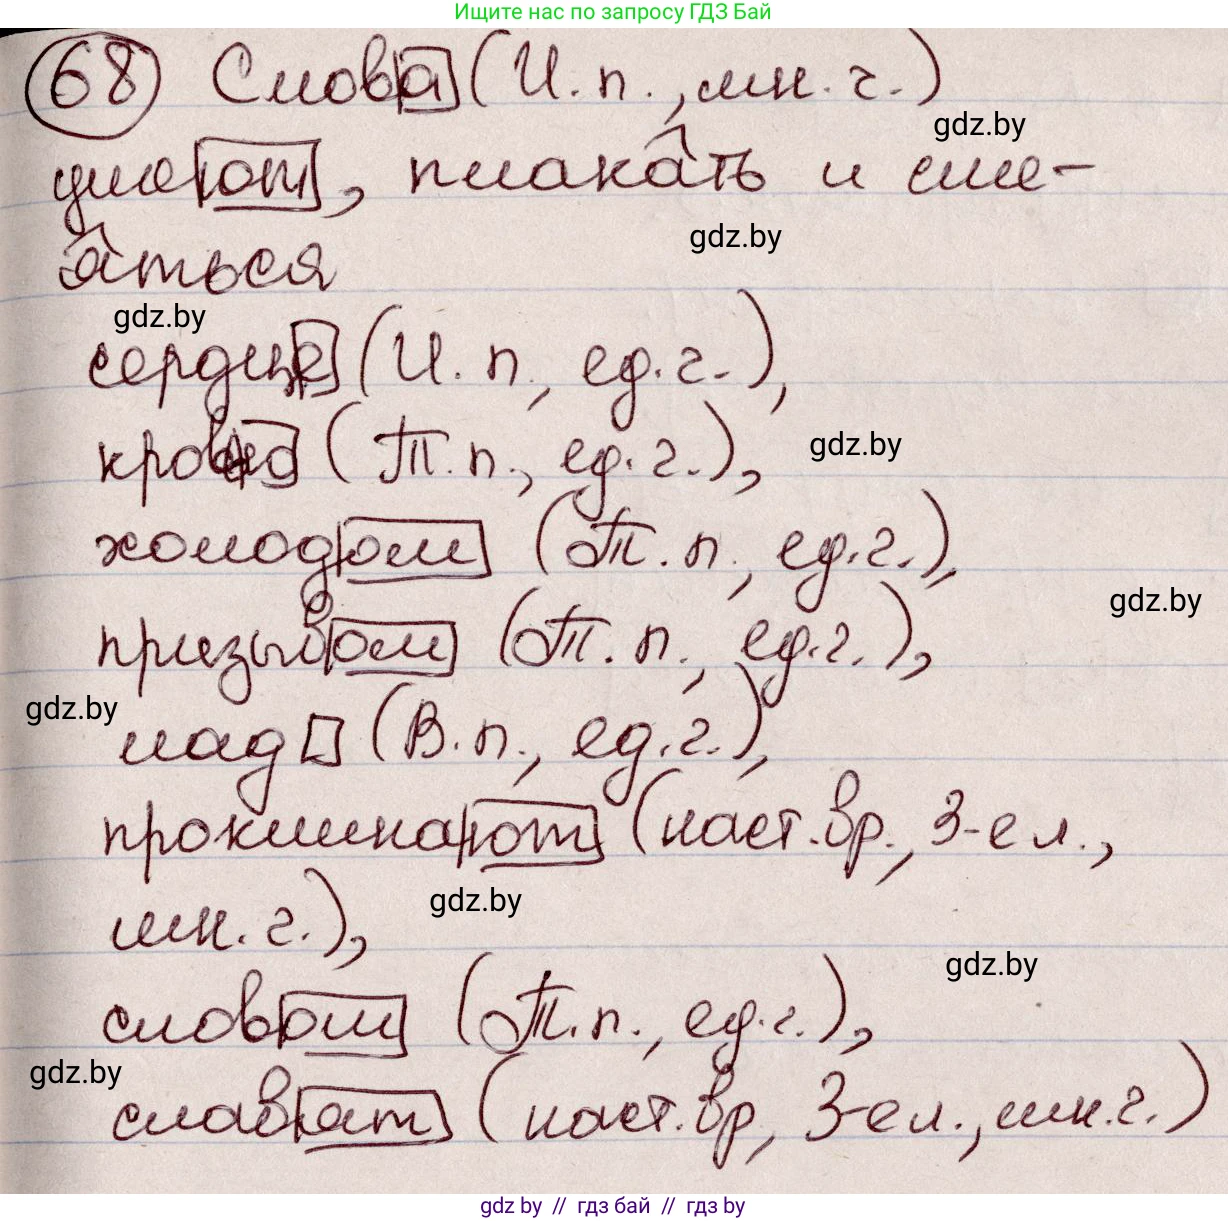 Ищите нас по запросу ГДЗ Бай
68 Слова (И. п., мн. ч.)
gdz.by
умеют, плакать и сме-
gdz.by
яться
gdz.by
сердце (И. п., ед. ч.),
кровью (Т. п., ед. ч.),
gdz.by
холодом (Т. п., ед. ч.),
gdz.by
призывом (Т. п., ед. ч.),
gdz.by
лад (В. п., ед. ч.),
проклинают (наст. вр., 3-е л.,
gdz.by
мн. ч.),
gdz.by
словом (Т. п., ед. ч.),
gdz.by
славят (наст. вр, 3-е л., мн. ч.)
gdz by // гдз бай // гдз by